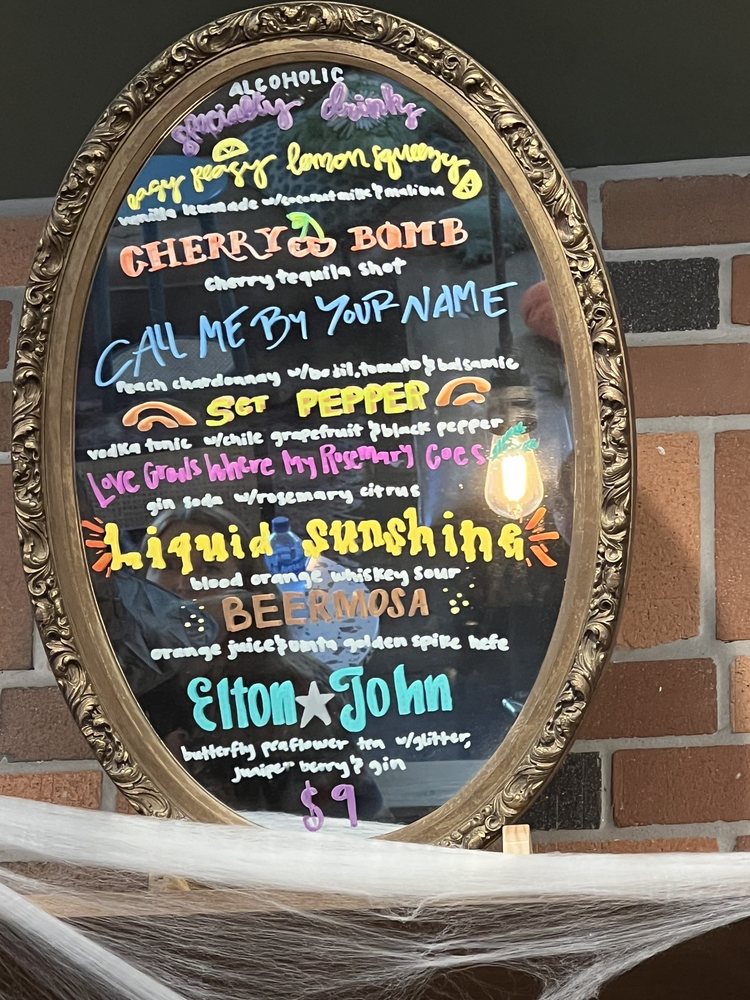 ALCOHOLIC
specialty drinks
easy peasy lemon squeezy
vanilla lemonade w/coconut milk & malibu
CHERRY BOMB
cherry tequila shot
CALL ME BY YOUR NAME
Peach chardonnay w/basil, tomato & balsamic
SGT PEPPER
vodka tonic w/chile grapefruit & black pepper
Love Grows Where My Rosemary Goes
gin soda w/rosemary citrus
Liquid Sunshine
blood orange whiskey sour
BEERMOSA
orange juice & uinta golden spike hefe
Elton John
butterfly peaflower tea w/glitter,
juniper berry & gin
$9